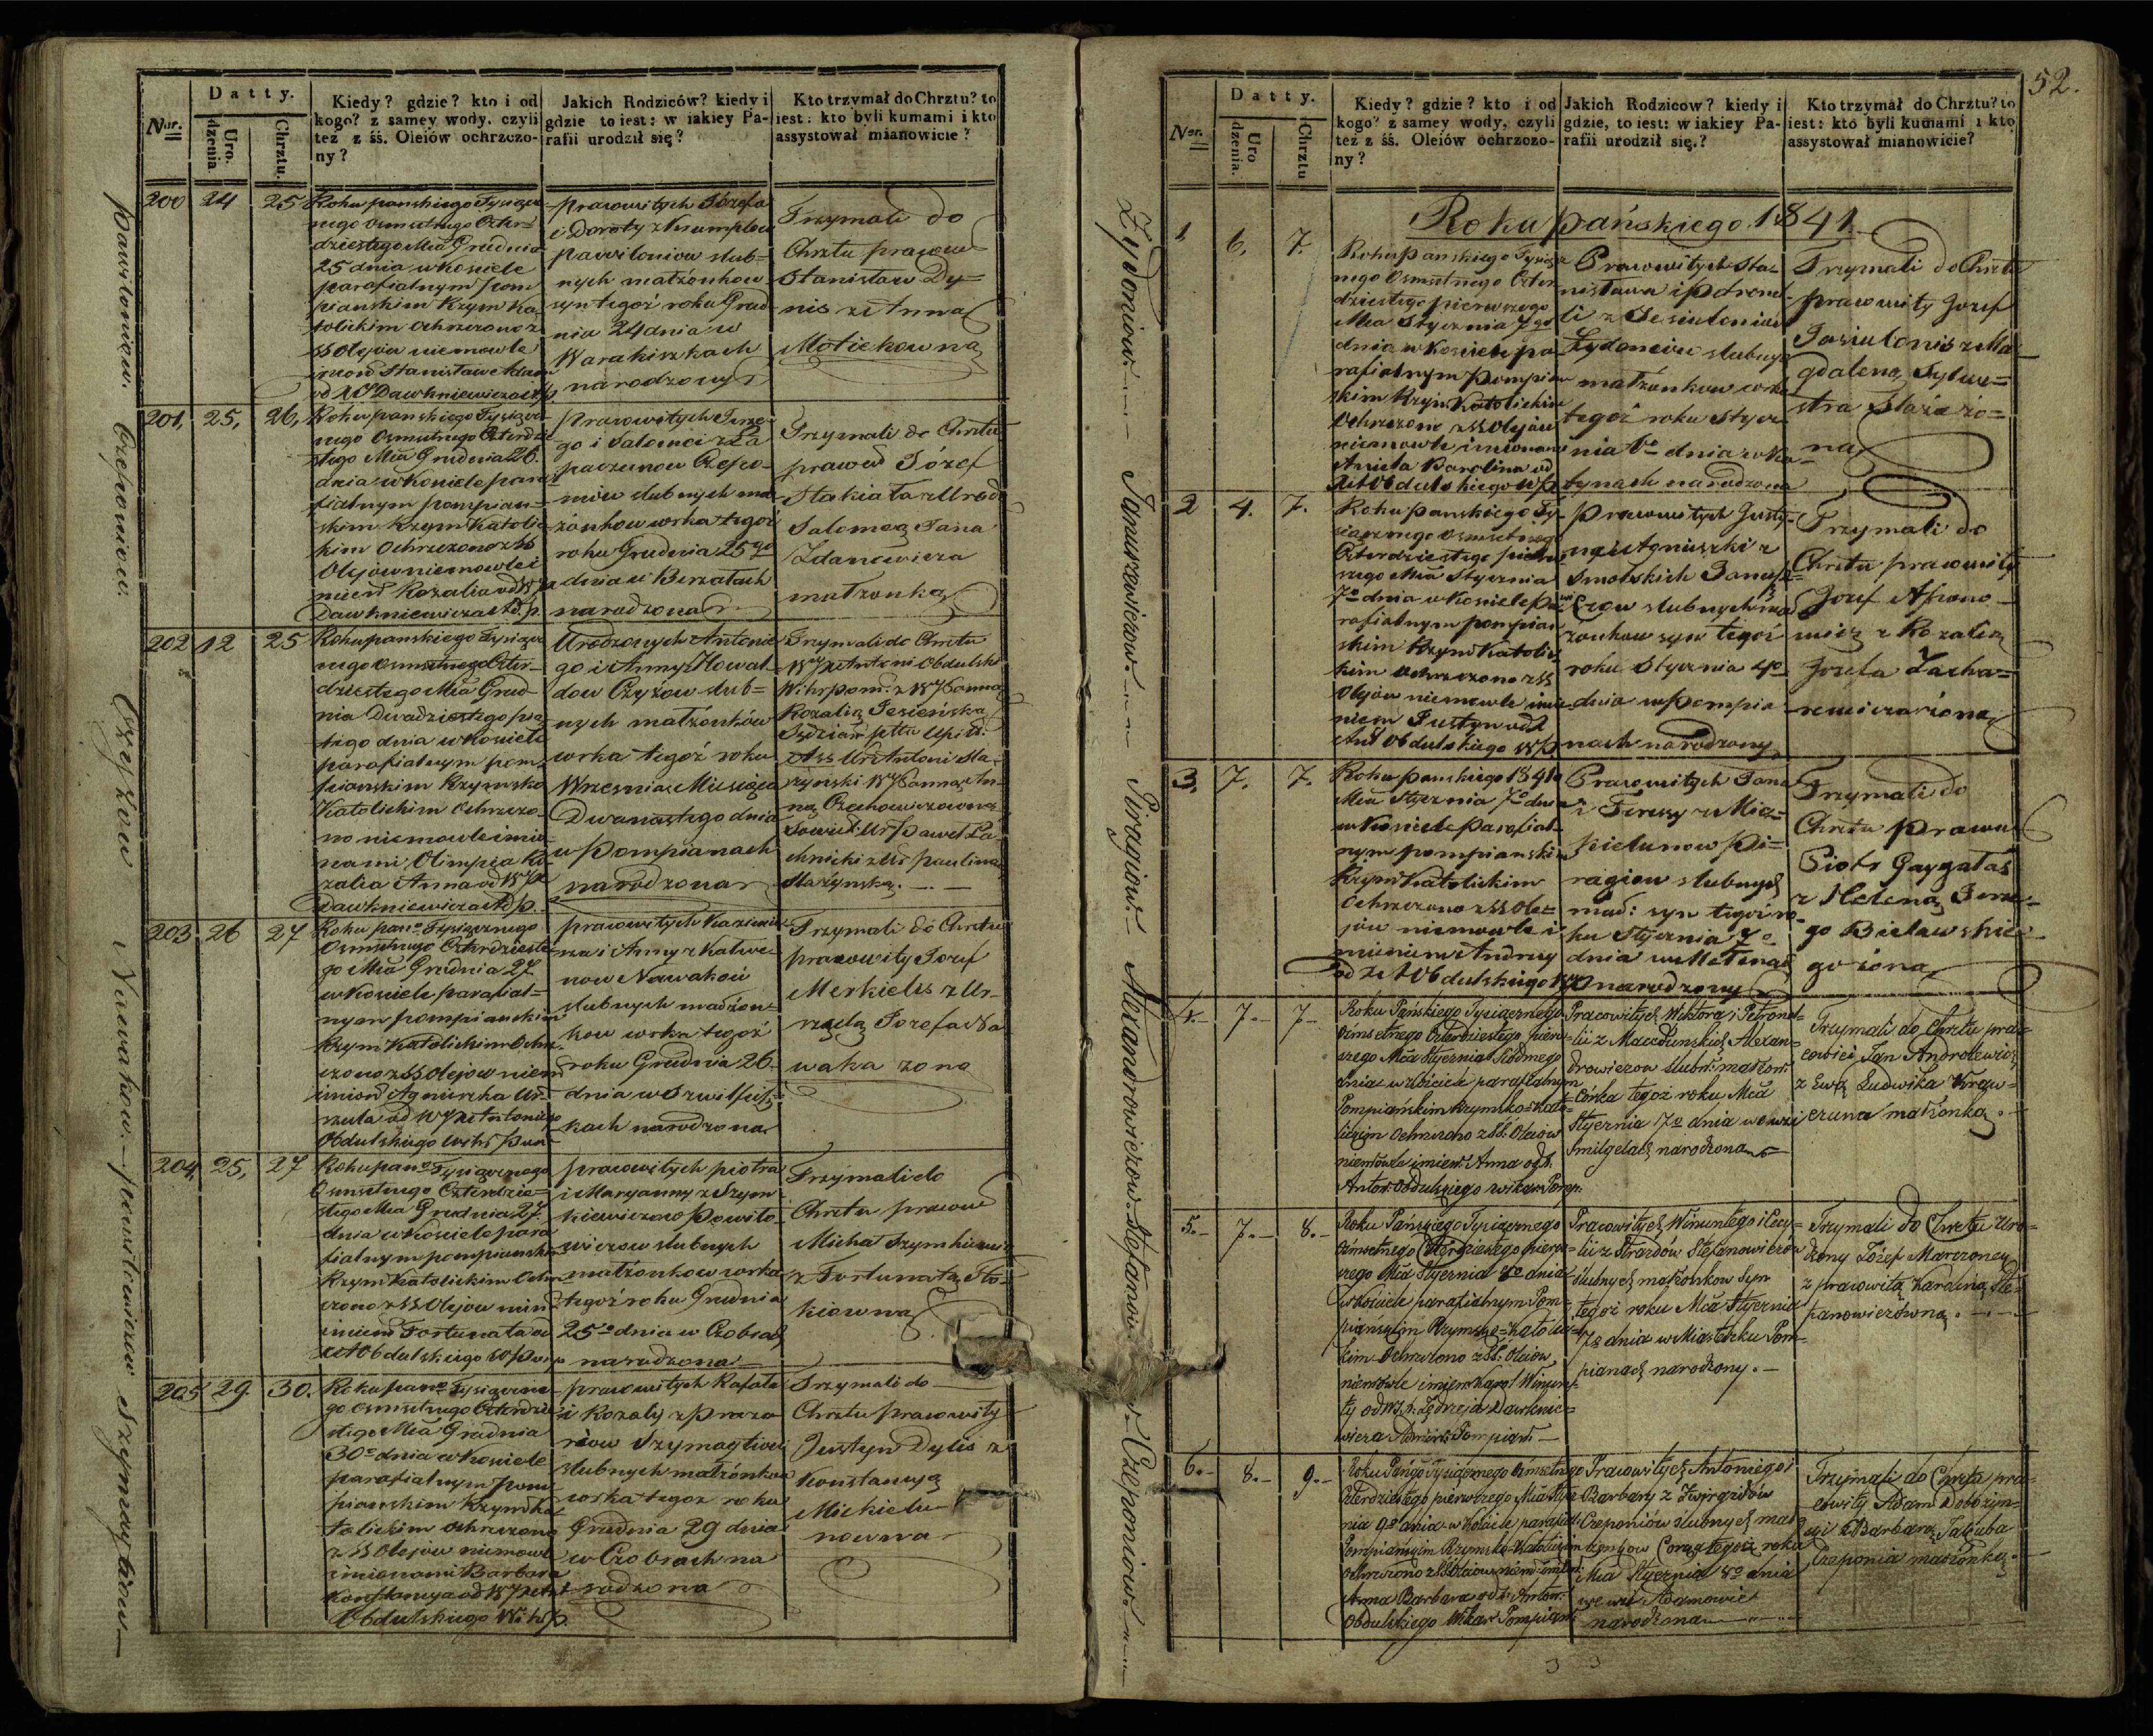 Nar.
Datty.
Uro.
dzenia
Chrztu.
Kiedy? gdzie? kto i od
kogo? z samey wody, czyli
też z śś. Oleiów ochrzczo-
ny?
Jakich Rodziców? kiedy i
gdzie to iest: w iakiey Pa-
rafii urodził się?
Kto trzymał do Chrztu? to
iest: kto byli kumami i kto
assystował mianowicie?
200
24
25
Roku panskiego Tysiącz
nego osmsetnego Czter-
dziestego Mca Grudnia
25 dnia w Kosciele
parafialnym pom
pianskim Rzym Ka
tolickim ochrzczono z
SS Olejow niemowle
imion Stanisław Adam
pracowitych Józefa
i Doroty z Krumplew
pawiloniow slub=
nych małżonkow
syn tegoż roku Grud
nia 24 dnia w
Warakiszkach
narodzony
Trzymali do
Chrztu pracow
Stanisław Dy=
nis z Anną
Motiekowną
201,
25,
26,
Roku panskiego Tysiącz
nego Osmsetnego Czterdzie
stego Mca Grudnia 26.
dnia w Kosciele para
fialnym pompian=
skim Rzym Katolic
kim ochrzczono z SS
Olejow niemowle i
mien Rozalia od
Dawkniewicza Ad. p.
pracowitych Jerze
go i Salomei z Ła
paczunow Czepo-
niow slubnych mał
żonkow corka tegoż
roku Grudnia 25go
dnia w Berzałach
narodzona
Trzymali do Chrztu
pracow Józef
Salomeą Jana
Zdanowicza
małżonką
202
12
25
Roku panskiego Tysiącz
nego osmsetnego Czter-
dziestego Mca Grud-
nia Dwudziestego pią
tego dnia w Kosciele
parafialnym pom=
pianskim Rzymsko
Katolickim ochrzczo-
no niemowle imio
nami Olimpia Ro-
zalia Anna od
Dawkniewicza Ad p.
Urodzonych Antonie
go i Anny z Kował
dow Czyżow slub=
nych małżonków
corka tegoż roku
Wrzesnia Miesiąca
Dwunastego dnia
w Pompianach
narodzona
Trzymali do Chrztu
Antoni Obdulski
Rozalią Jesieńską
Ass Ur Antoni Ma-
203
26
27
Roku pano Tysiącznego
Osmsetnego Czterdzieste
go Mca Grudnia 27
w Kosciele parafial=
nym pompianskim
Rzym Katolickim Ochrz
czono z SS Olejow niem
imion Agnieszka Ur-
szula od
Obdulskiego
pracowitych Kazimie
rza i Anny z Katwe-
now Nawakow
slubnych małżon-
kow corka tegoż
roku Grudnia 26.
dnia w
kach narodzona
Trzymali do Chrztu
pracowity Jozef
Merkielis z Ur-
szulą Jozefa Na
waka żoną
204,
25,
27
Roku pano Tysiącznego
Osmsetnego Czterdzie=
stego Mca Grudnia 27.
dnia w Kosciele para
fialnym pompianskim
Rzym Katolickim Ochrz=
czono z SS Olejow niem
imien Fortunata od
pracowitych piotra
i Maryanny z Szym
kiewiczow Powiło-
wiczow slubnych
małżonkow corka
tegoż roku Grudnia
25o dnia w Czobrach
narodzona
Trzymali do
Chrztu pracow
Michał Szymkiewicz
z Fortunatą Sto-
kiowną
205
29
30.
Roku pano Tysiączne
go osmsetnego Czterdzie
stego Mca Grudnia
30o dnia w Kosciele
parafialnym pom
pianskim Rzymsko
tolickim ochrzczono
z SS Olejow niemowle
imionami Barbara
Konstancya od
Obdulskiego
pracowitych Rafała
i Rozalij z
slubnych małżonkow
corka tegoz roku
Grudnia 29 dnia
w Czobrach na
rodzona
Trzymali do
Chrztu pracowity
Justyn Dylis z
Konstancyą
Mickielu-
nowną
52.
Nar.
Datty.
Uro
dzenia.
Chrztu
Kiedy? gdzie? kto i od
kogo? z samey wody, czyli
też z śś. Oleiów ochrzczo-
ny?
Jakich Rodzicow? kiedy i
gdzie, to iest: w iakiey Pa-
rafii urodził się.?
Kto trzymał do Chrztu? to
iest: kto byli kumami i kto
assystował mianowicie?
Roku pańskiego 1841.
1,
6,
7.
Roku Panskiego Tysiącz
nego Osmsetnego Czter
dziestego pierwszego
Mca Stycznia 7go
dnia w Kosciele pa
rafialnym Pompian
skim Rzym Katolickim
Ochrzczono z SS Olejow
niemowle imionami
Aniela Karolina od
Pracowitych Sta=
nisława i Petronel
li z Jesiuleniow
Zydoniow slubnych
małżonkow corka
tegoż roku Stycz
nia 6o dnia w Ro-
tynach narodzona
Trzymali do Chrztu
pracowity Jozef
Jasiulonis z Ma
gdaleną Sylwe=
stra
żo=
ną
2
4.
7.
Roku panskiego Ty-
siącznego osmsetnego
Czterdziestego pierw
szego Mca Stycznia
7o dnia w Kosciele pa
rafialnym pompian
skim Rzym Katolic
kim ochrzczono z SS
Olejow niemowle imie
niem Justyn od
Ant Obdulskiego
pracowitych Justy-
na i Agnieszki z
Smolskich Janusze=
wiczow slubnych mał
żonkow syn tegoż
roku Stycznia 4o
dnia w Pompia
nach narodzony
Trzymali do
Chrztu pracowity
Jozef Afano-
wicz z Rozalią
Jozefa Zacha=
rewicza żoną
3,
7.
7.
Roku panskiego 1841o
Mca Stycznia 7o dnia
w Kosciele Parafial-
nym pompianskim
Rzym Katolickim
Ochrzczono z SS Ole=
jow niemowle i
mieniem Andrzej
od X A Obdulskiego
Pracowitych Jana
i Teresy z Mic=
kielunow Pi=
ragiow slubnych
mał: syn tegoż ro-
ku Stycznia 7o
dnia w
narodzony
Trzymali do
Chrztu pracow
Piotr Gaygałas
z Heleną Jerze-
go Bielawskie-
go żoną
4.-
7.-
7-
Roku Pańskiego Tysiącznego
ośmsetnego Czterdziestego pierw-
szego Mca Stycznia Siódmego
dnia w kościele parafialnym
Pompiańskim Rzymsko=Kato=
lickim ochrzczono z SS. Oleiow
niemowle imien: Anna od X.
Anton: Obdulskiego wikar: Pomp:
Pracowitych Wiktora i Petronel=
lii z Macedunskich Alexan=
drowiczow slubn: małżon:
córka tegoż roku Mca
Stycznia 7o dnia we wsi
Smilgelach narodzona
Trzymali do Chrztu pra=
cowici Jan Androlewicz
z Ewą Ludwika Kraw=
czuna małżonką.
5.-
7.-
8.-
Roku Pańskiego Tysiącznego
ośmsetnego Czterdziestego pierw=
szego Mca Stycznia 8o dnia
w kościele parafialnym Pom=
piańskim Rzymsko=Katolic=
kim Ochrzczono z SS: Oleiow
niemowle imien: Karol Wincen=
ty od W. X. Jędrzeja Dawknie=
wicza Admin: Pompian:
Pracowitych Wincentego i Cecy=
lii z Strazdów Stefanowiczów
slubnych małżonkow syn
tegoż roku Mca Stycznia
7o dnia w Miasteczku Pom=
pianach narodzony.-
Trzymali do Chrztu Uro=
dzony Józef Marczoney
z pracowitą Karoliną Ste=
panowiczówną.
6.-
8.-
9.-
Roku Pańgo Tysiącznego ośmsetne
Czterdziestego pierwszego Mca Stycz
nia 9o dnia w kościele parafial:
Pompiańskim Rzymsko-Katolickim
ochrzczono z SS Oleiow niem: imion:
Anna Barbara od X. Anton:
Obdulskiego Wikar Pompian:
Pracowitych Antoniego i
Barbary z Zwirgzdów
Czeponiów slubnych mał
żonkow Córka tegoż roku
Mca Stycznia 8o dnia
we wsi Adamowie
narodzona
Trzymali do Chrztu pra=
cowity Adam Dobożyn=
ski z Barbarą Jakuba
Czeponia małżonką.
Pawiloniow. Czeponiow. Czyżow Nawakow. Powiłowiczow Szymaytiow
Zydoniow Januszewiczow Piragiow. Alexandrowiczow. Stefanowiczow Czeponiow